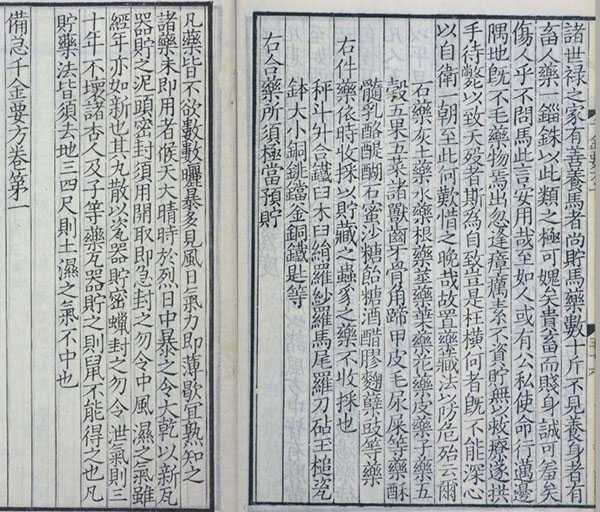 諸世祿之家有善養馬者尚貯馬藥數十斤不見養身者有
畜人藥一錙銖以此類之極可愧矣貴畜而賤身誠可羞矣
傷人乎不問馬此言安用哉至如人或有公私使命行邁邊
隅地既不毛藥物焉出忽逢瘴癘素不資貯無以救療遂拱
手待斃以致夭歿者斯為自致豈是枉橫何者既不能深心
以自衛一朝至此何歎惜之晚哉故置藥藏法以防危殆云爾
石藥灰土藥水藥根藥莖藥葉藥花藥皮藥子藥五
穀五果五菜諸獸齒牙骨角蹄甲皮毛尿屎等藥酥
髓乳酪醍醐石蜜沙糖飴糖酒醋膠麴蘖豉等藥
右件藥依時收採以貯藏之蟲豸之藥不收採也
秤斗升合鐵臼木臼絹羅紗羅馬尾羅刀砧玉槌瓷
鉢大小銅銚鐺釜銅鐵匙等
右合藥所須極當預貯
凡藥皆不欲數數曬暴多見風日氣力即薄歇宜熟知之
諸藥未即用者候天大晴時於烈日中暴之令大乾以新瓦
器貯之泥頭密封須用開取即急封之勿令中風濕之氣雖
經年亦如新也其丸散以瓷器貯密蠟封之勿令泄氣則三
十年不壞諸杏人及子等藥瓦器貯之則鼠不能得之也凡
貯藥法皆須去地三四尺則土濕之氣不中也
備急千金要方卷第一